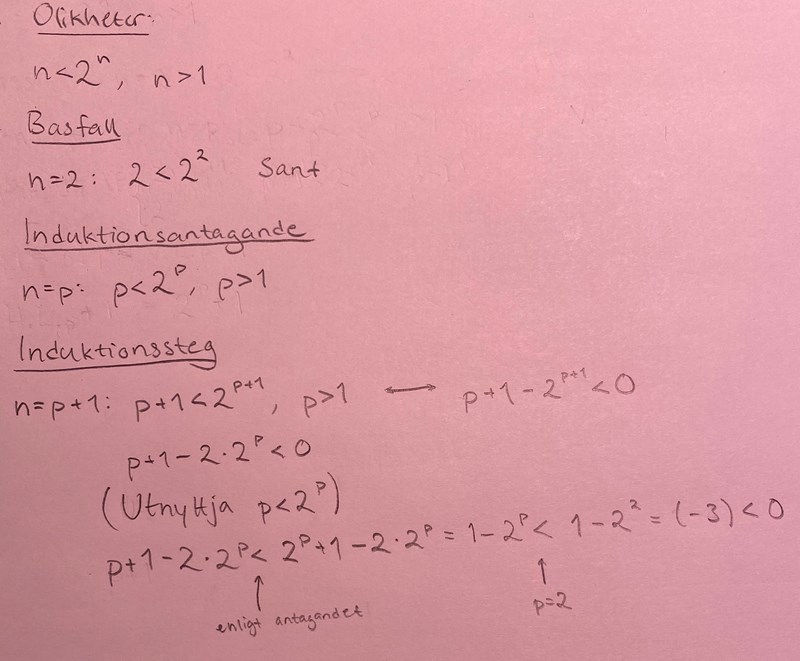 Olikheter:
n<2ⁿ, n>1
Basfall
n=2: 2<2² Sant
Induktionsantagande
n=p: p<2ᵖ, p>1
Induktionssteg
n=p+1: p+1<2ᵖ⁺¹, p>1 ⟷ p+1-2ᵖ⁺¹<0
p+1-2·2ᵖ<0
(Utnyttja p<2ᵖ)
p+1-2·2ᵖ< 2ᵖ+1-2·2ᵖ = 1-2ᵖ< 1-2² = (-3)<0
↑ ↑
enligt antagandet p=2